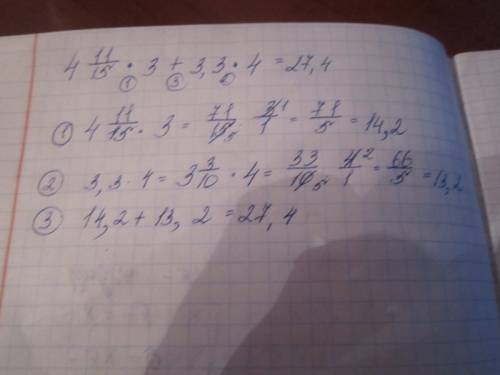 4 11/15 · 3 + 3,3 · 4 = 27,4
① ③ ②
① 4 11/15 · 3 = 71/15 5 · 3 1/1 = 71/5 = 14,2
② 3,3 · 4 = 3 3/10 · 4 = 33/10 5 · 4 2/1 = 66/5 = 13,2
③ 14,2 + 13,2 = 27,4